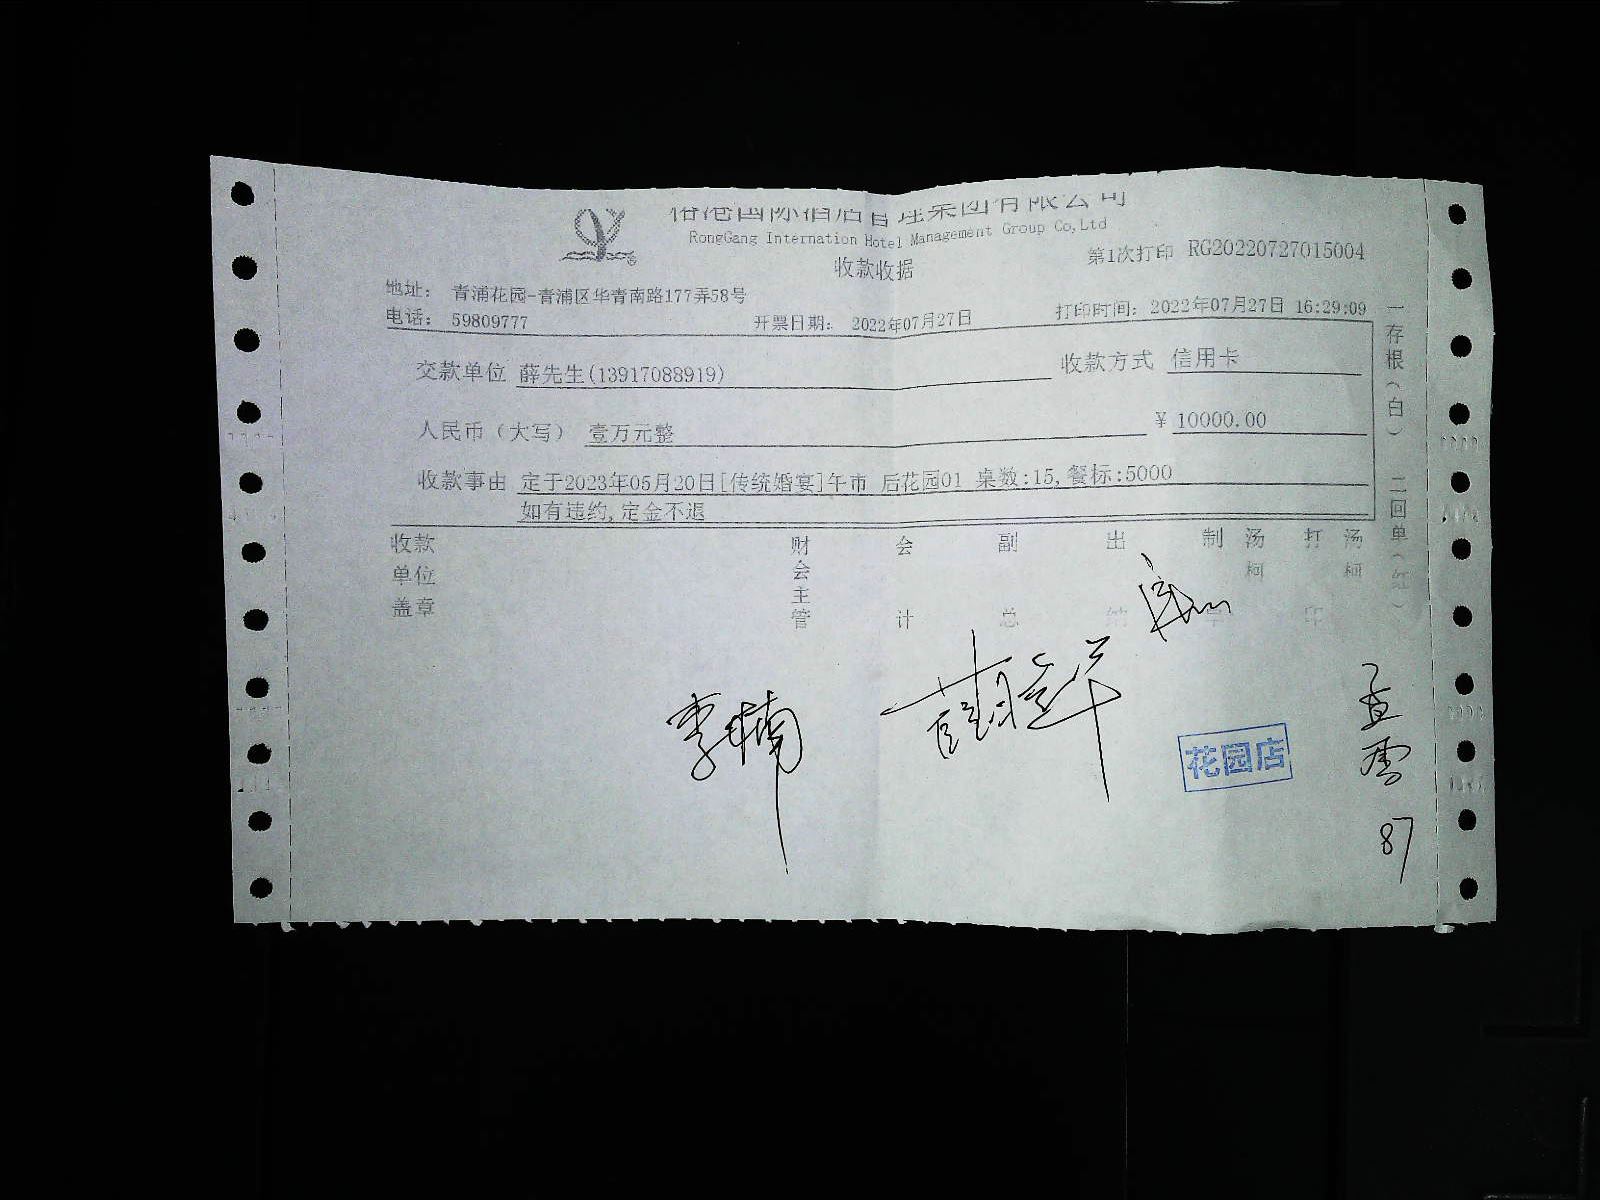 港国际酒店管理集团有限公司
RongGang Internation Hotel Management Group Co,Ltd
收款收据
第1次打印 RG20220727015004
地址： 青浦花园-青浦区华青南路177弄58号
电话： 59809777 开票日期： 2022年07月27日 打印时间： 2022年07月27日 16:29:09
交款单位 薛先生(13917088919) 收款方式 信用卡
人民币（大写） 壹万元整 ¥ 10000.00
收款事由 定于2023年05月20日[传统婚宴]午市 后花园01 桌数:15,餐标:5000
如有违约,定金不退
收款单位盖章 财会主管 会计 副总 出纳 制单 汤柯 打印 汤柯
一存根（白） 二回单（红）
李楠
花园店
孟雪
87